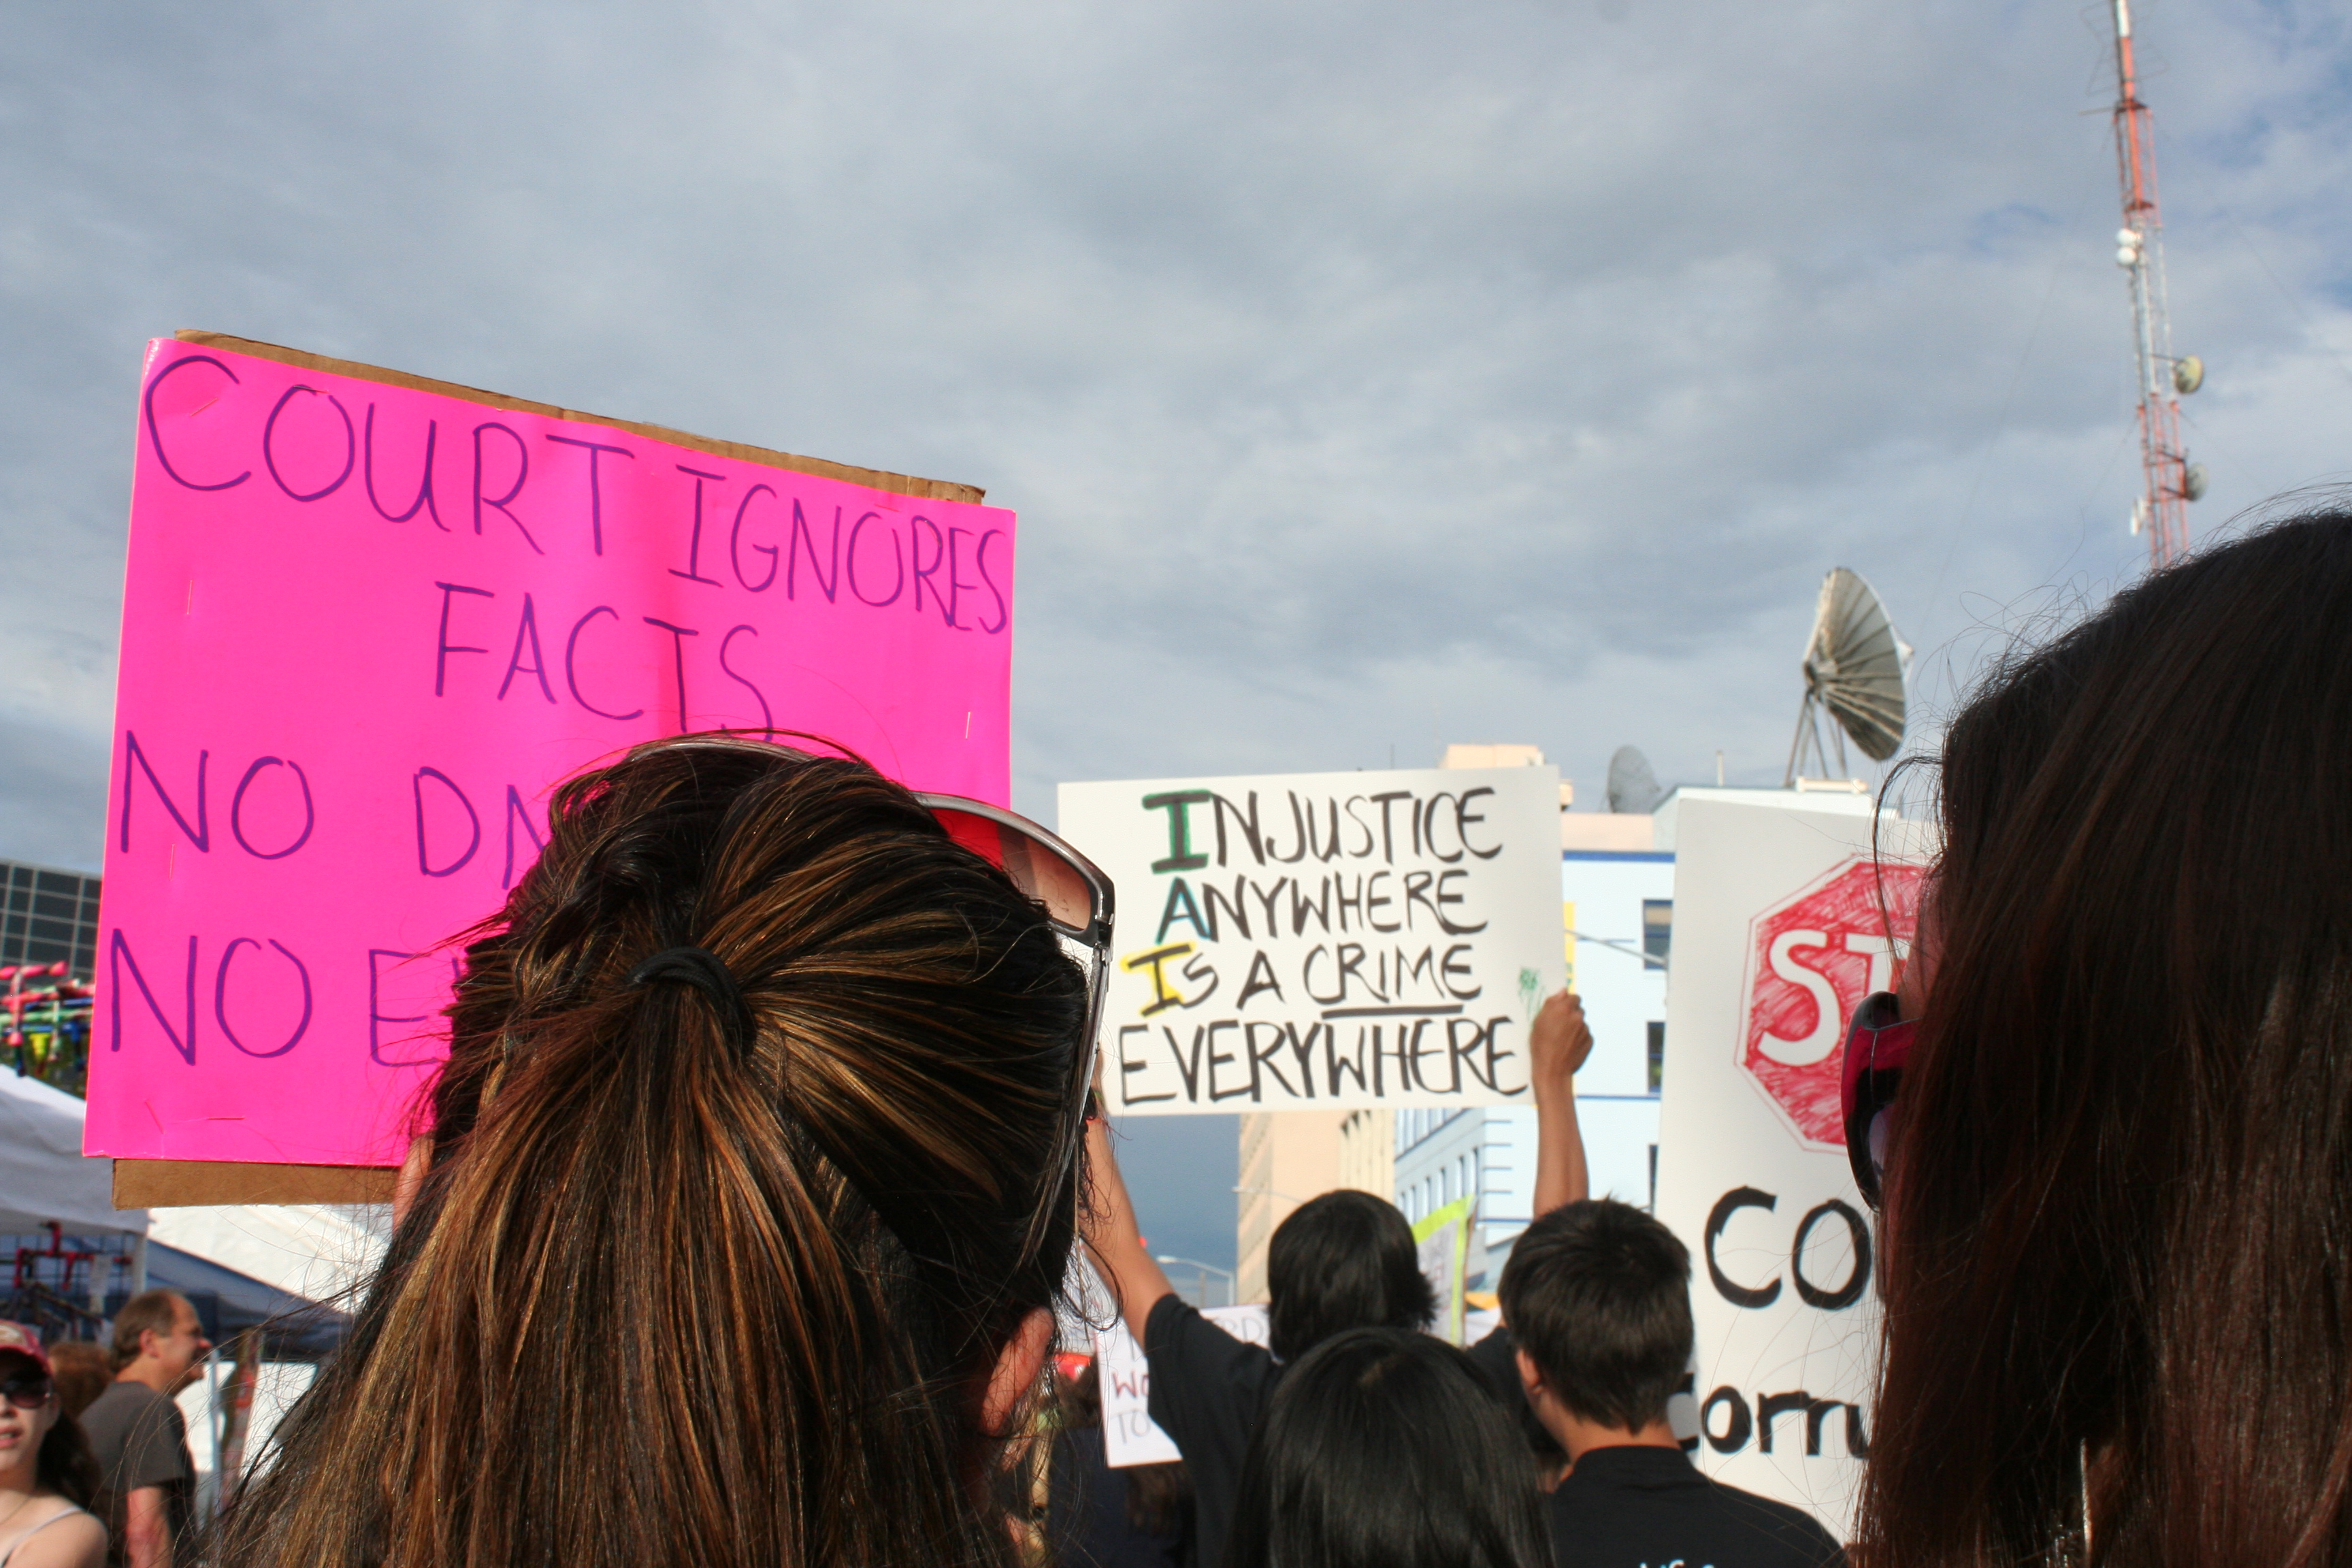 COURT IGNORES
FACTS
NO
NO
INJUSTICE
ANYWHERE
IS A CRIME
EVERYWHERE
TO